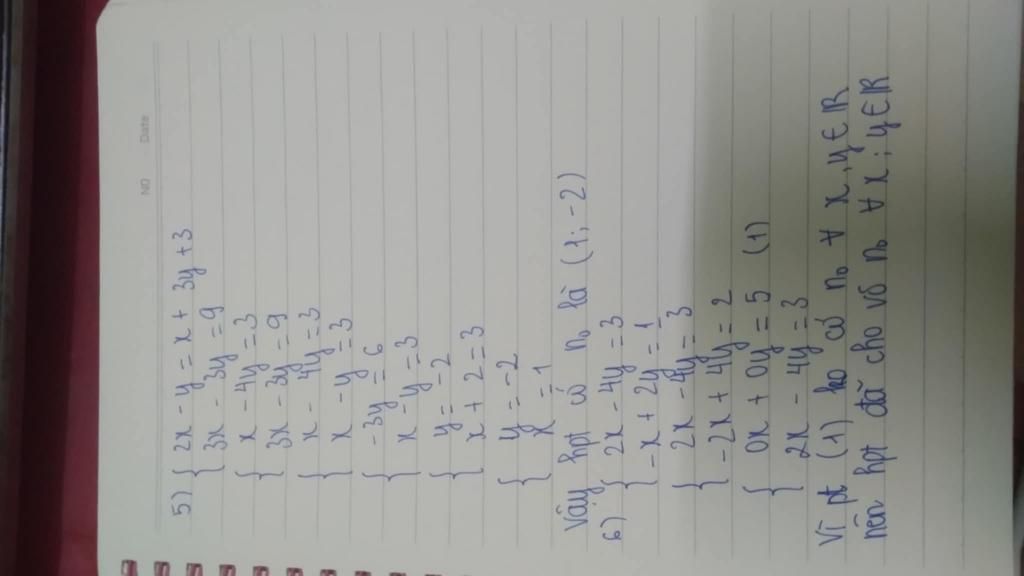 NO Date
5) { 2x - y = x + 3y + 3
3x - 3y = 9
{ x - 4y = 3
3x - 3y = 9
{ x - 4y = 3
x - y = 3
{ -3y = 6
x - y = 3
{ y = -2
x + 2 = 3
{ y = -2
x = 1
Vậy hpt có n₀ là (1; -2)
6) { 2x - 4y = 3
-x + 2y = 1
{ 2x - 4y = 3
-2x + 4y = 2
{ 0x + 0y = 5 (1)
2x - 4y = 3
Vì pt (1) ko có n₀ ∀ x, y ∈ R
nên hpt đã cho vô n₀ ∀ x; y ∈ R